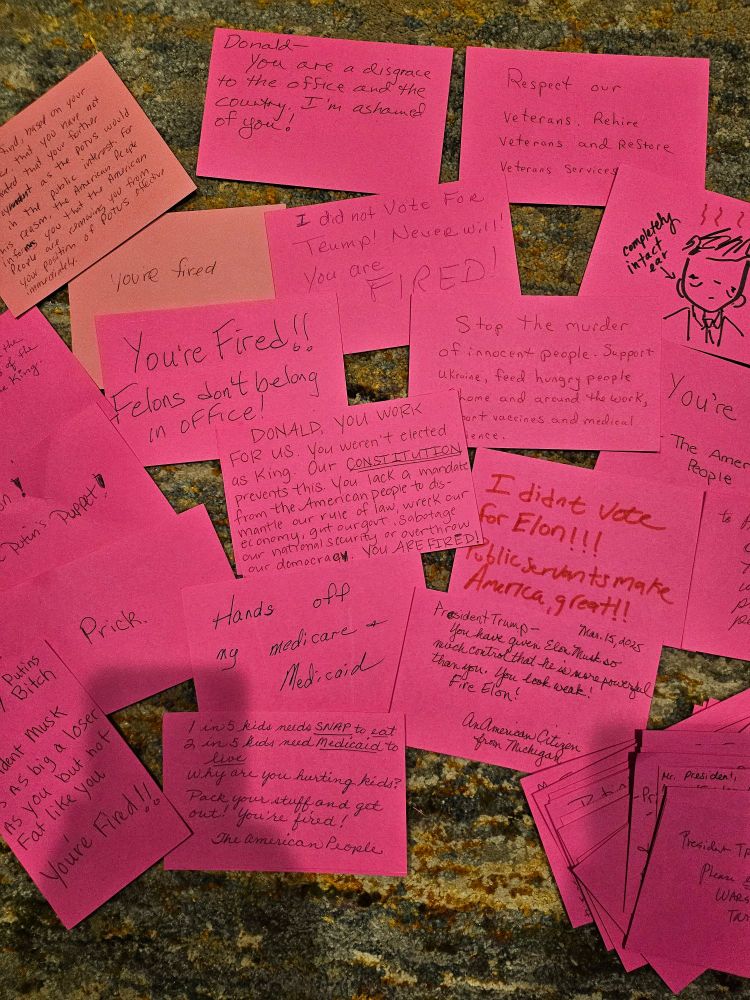 Donald—
You are a disgrace
to the office and the
country. I'm ashamed
of you!
Respect our
Veterans. Rehire
Veterans and ReStore
Veterans Services
based on your
that you have not
that your further
as the POTUS would
in the public interest. For
reason, the American People
informs you that the American
People are removing you from
your position of POTUS effective
immediately.
youre fired
I did not Vote For
Trump! Never will!
You are
FIRED!
completely
intact
ear
You're Fired!!
Felons don't belong
in office!
Stop the murder
of innocent people. Support
Ukraine, feed hungry people
home and around the work,
vaccines and medical
You're
The Amer
People
the
of the
King.
Putin's Puppet!
DONALD, YOU WORK
FOR US. You weren't elected
as King. Our CONSTITUTION
prevents this. You lack a mandate
from the American people to dis-
mantle our rule of law, wreck our
economy, gut our govt. Sabotage
our national security or overthrow
our democracy. YOU ARE FIRED!
I didnt vote
for Elon!!!
Public servants make
America, great!!
to
Prick.
Hands off
my medicare +
Medicaid
President Trump— Mar. 15, 2025
You have given Elon Musk so
much control that he is more powerful
than you. You look weak!
Fire Elon!
An American Citizen
from Michigan
Putins
Bitch
Musk
as big a loser
As you but not
Fat like you
Youre Fired!!
1 in 5 kids needs SNAP to eat
2 in 5 kids need Medicaid to
live
Why are you hurting kids?
Pack your stuff and get
out! You're fired!
The American People
Mr. President,
President
Please